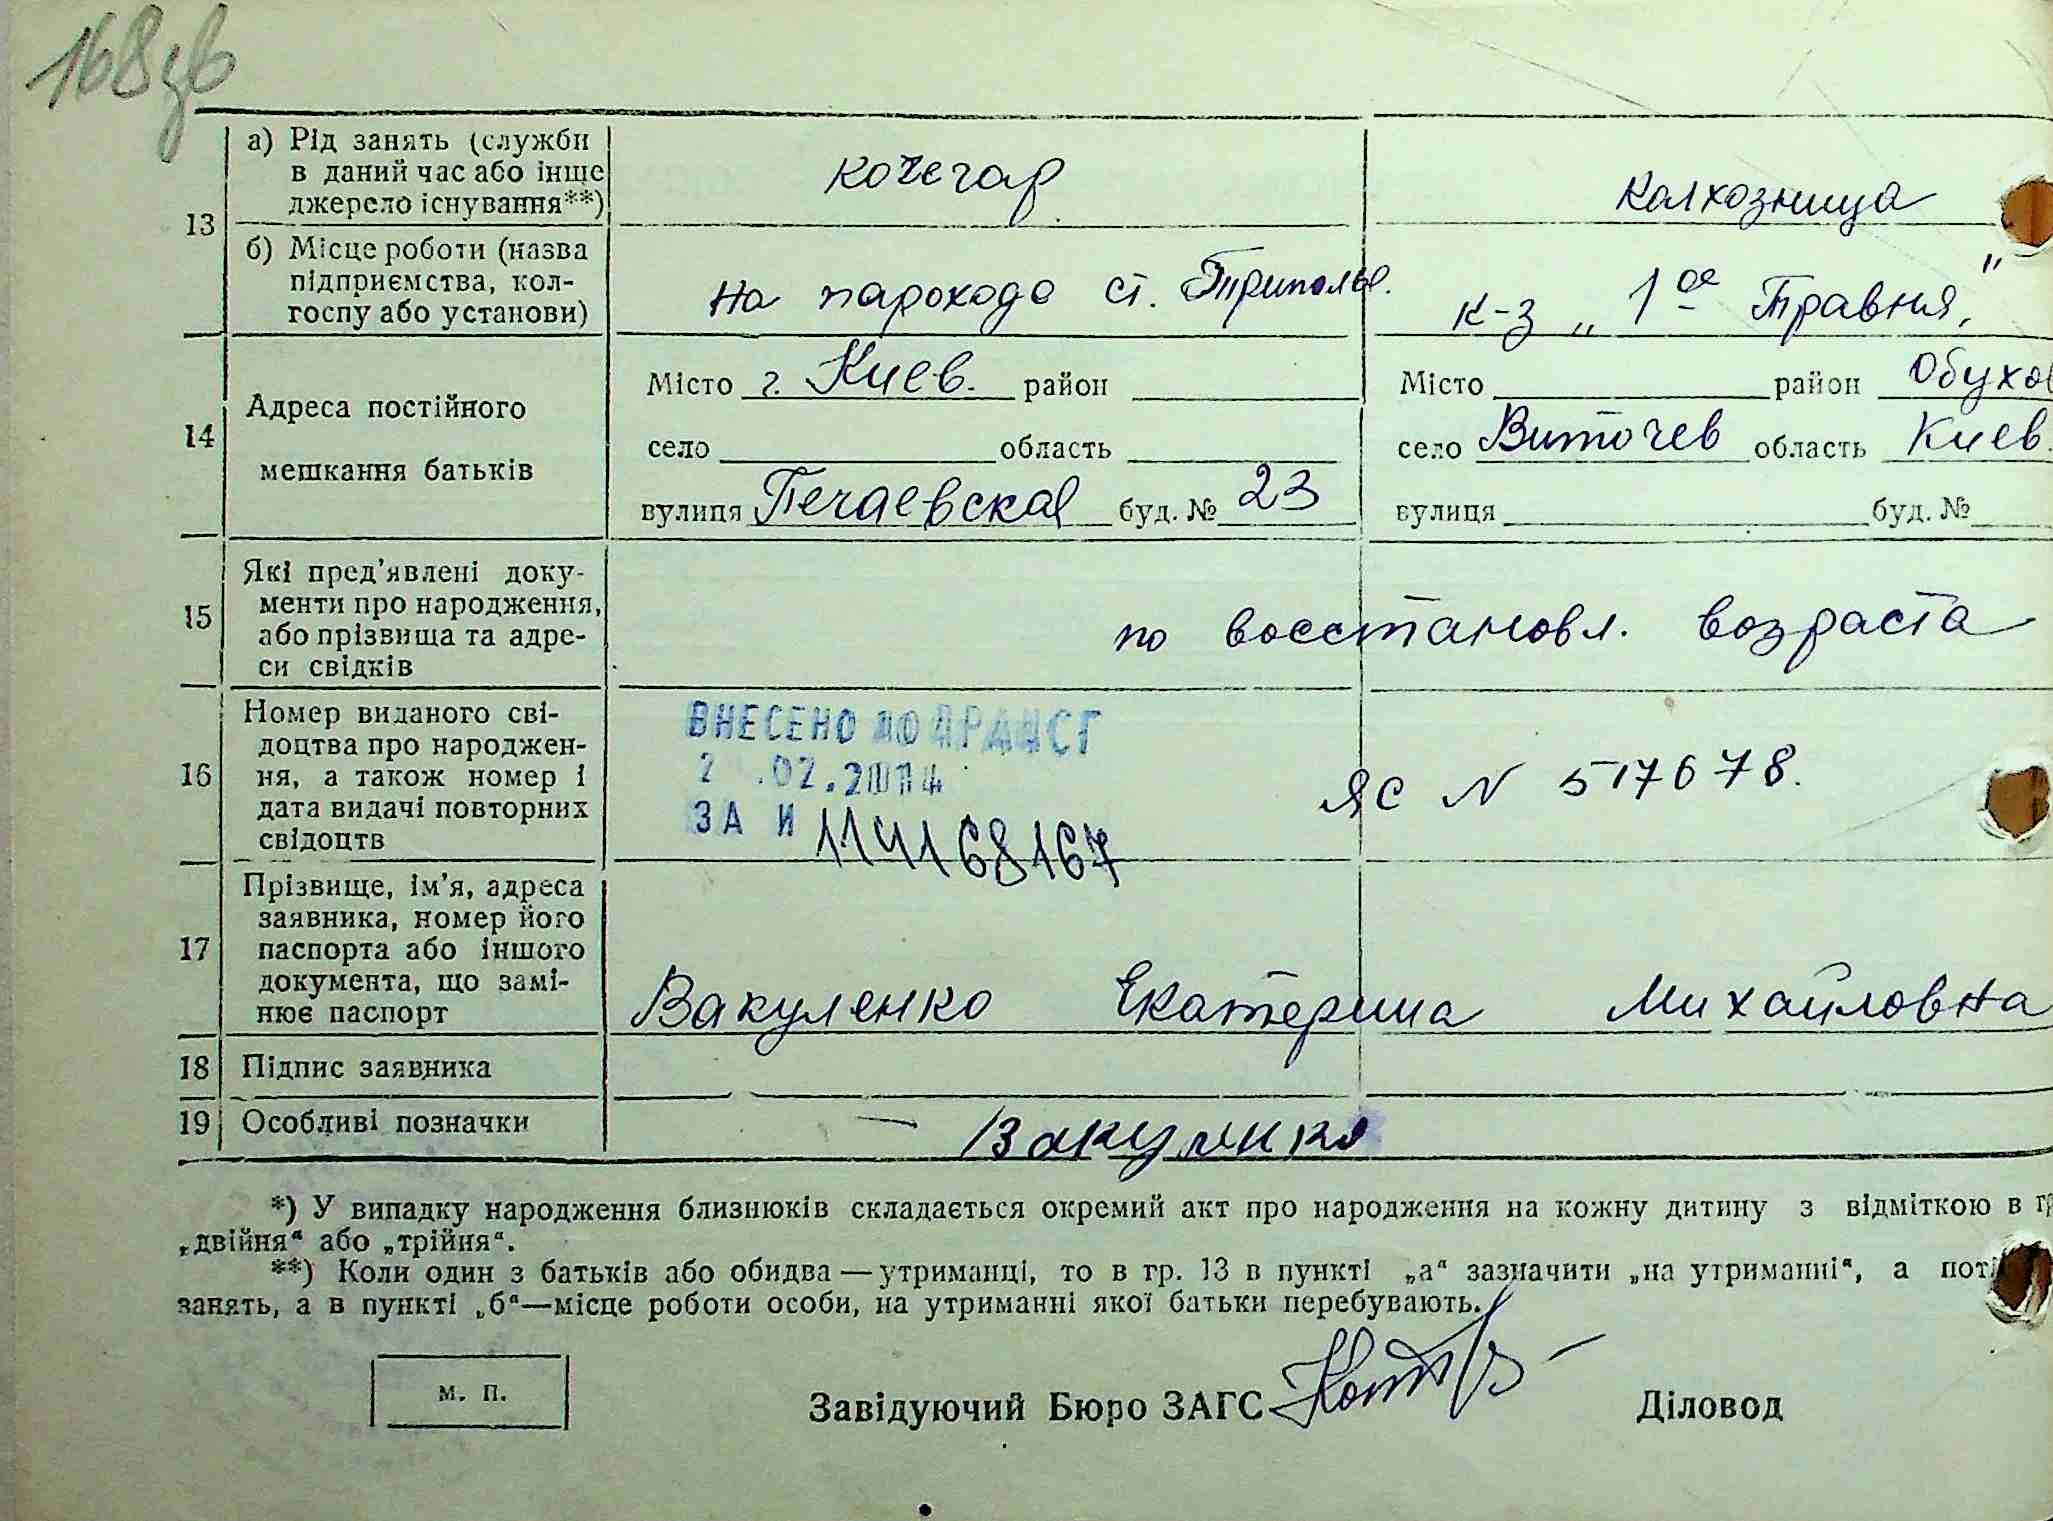 168 зв
13
а) Рід занять (служби
в даний час або інше
джерело існування**)
кочегар
колхозница
б) Місце роботи (назва
підприємства, кол-
госпу або установи)
на парохода ст. Триполье.
к-з „1ое Травня,"
14
Адреса постійного
мешкання батьків
Місто г. Киев. район
село область
вулиця Печаевская буд. № 23
Місто район Обухов
село Витачев область Киев.
вулиця буд. №
15
Які пред'явлені доку-
менти про народження,
або прізвища та адре-
си свідків
по восстановл. возраста
16
Номер виданого сві-
доцтва про народжен-
ня, а також номер і
дата видачі повторних
свідоцтв
ВНЕСЕНО ДО ДРАЦСГ
2 .02.2014
ЗА N 114168167
ЯС N 517678.
17
Прізвище, ім'я, адреса
заявника, номер його
паспорта або іншого
документа, що замі-
нює паспорт
Вакуленко Екатерина Михайловна
18 Підпис заявника
19 Особливі позначки
— Вакуленко
*) У випадку народження близнюків складається окремий акт про народження на кожну дитину з відміткою в гр
„двійня“ або „трійня“.
**) Коли один з батьків або обидва — утриманці, то в гр. 13 в пункті „а“ зазначити „на утриманні“, а поті
занять, а в пункті „б“—місце роботи особи, на утриманні якої батьки перебувають.
м. п.
Завідуючий Бюро ЗАГС
Діловод